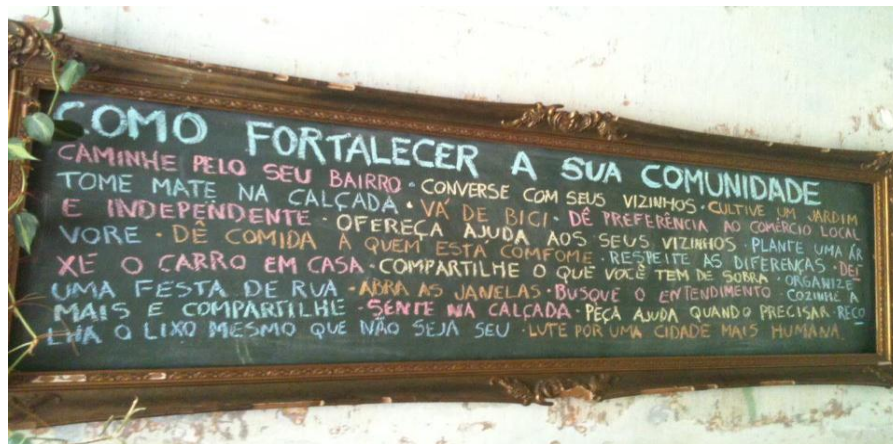 COMO FORTALECER A SUA COMUNIDADE
CAMINHE PELO SEU BAIRRO · CONVERSE COM SEUS VIZINHOS · CULTIVE UM JARDIM
TOME MATE NA CALÇADA · VÁ DE BICI · DÊ PREFERÊNCIA AO COMÉRCIO LOCAL
E INDEPENDENTE · OFEREÇA AJUDA AOS SEUS VIZINHOS · PLANTE UMA ÁR
VORE · DÊ COMIDA A QUEM ESTÁ COMFOME · RESPEITE AS DIFERENÇAS · DEI
XE O CARRO EM CASA · COMPARTILHE O QUE VOCÊ TEM DE SOBRA · ORGANIZE
UMA FESTA DE RUA · ABRA AS JANELAS · BUSQUE O ENTENDIMENTO COZINHE A
MAIS E COMPARTILHE · SENTE NA CALÇADA · PEÇA AJUDA QUANDO PRECISAR · RECO
LHA O LIXO MESMO QUE NÃO SEJA SEU · LUTE POR UMA CIDADE MAIS HUMANA